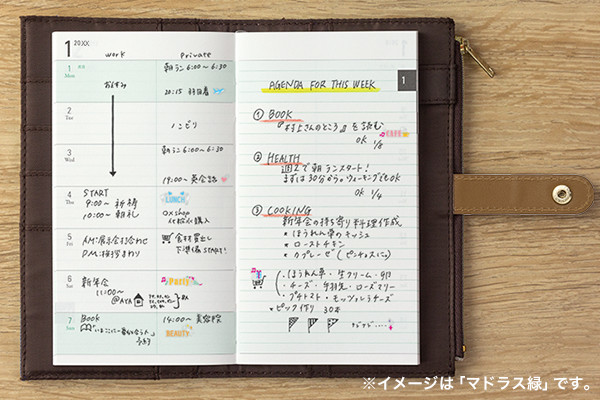 1 20XX
work
Private
1
Mon
朝ラン 6:00〜6:30
2
Tue
3
Wed
朝ラン 6:00〜6:30
19:00〜 英会話
4
Thu
START
9:00〜 祈祷
10:00〜 朝礼
LUNCH
5
Fri
食材買出し
下準備START!
6
Sat
新年会
11:00〜
@AYA
Party
7
Sun
BOOK
予約
14:00〜 美容院
BEAUTY
1
AGENDA FOR THIS WEEK
① BOOK
『村上さんのところ』を読む
CAFE
OK 1/8
② HEALTH
週2で朝ランスタート!
まずは30分から。ウォーキングでもOK
OK 1/4
③ COOKING
新年会の持ち寄り料理作成
* ほうれん草のキッシュ
* ローストチキン
・ほうれん草・生クリーム・卵
・チーズ・手羽先・ローズマリー
・プチトマト・モッツァレラチーズ
*ピック作り 30本
※イメージは「マドラス緑」です。